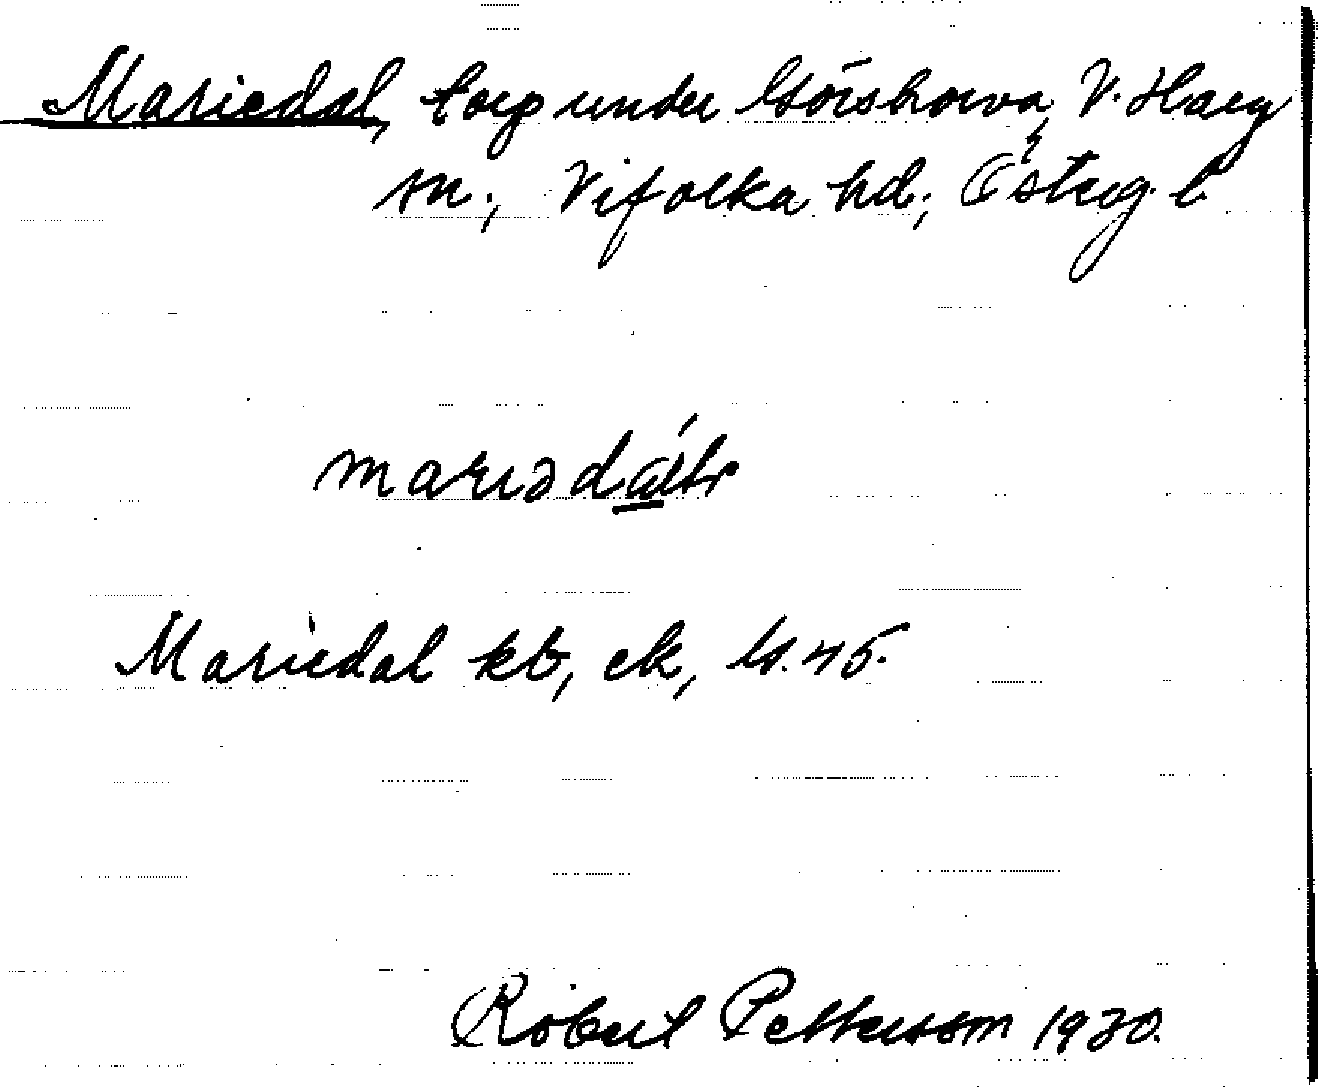 Mariedal, torp under Görstorva, V. Harg
sn., Vifolka hd., Österg. l.
Mariedal kb, ek, 45.
Robert Pettersson 1930.